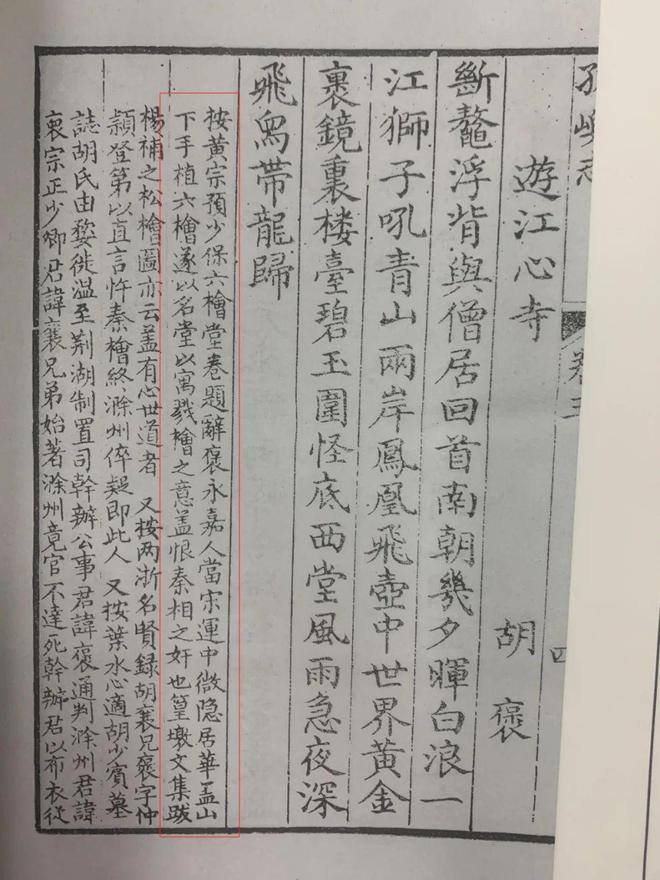 孤嶼志 卷三 四
遊江心寺
胡褒
斷鼇浮背與僧居回首南朝幾夕暉白浪一
江獅子吼青山兩岸鳳凰飛壺中世界黃金
裏鏡裏楼臺碧玉圍怪底西堂風雨急夜深
飛舄帶龍歸
按黃宗預少保六檜堂卷題辭褒永嘉人當宋運中微隐居華盖山
下手植六檜遂以名堂以寓戮檜之意盖恨秦相之奸也篁墩文集跋
楊補之松檜圖亦云盖有心世道者 又按两浙名賢録胡襄兄褒字仲
頴登第以直言忤秦檜終滁州倅疑即此人 又按葉水心適胡少賓墓
誌胡氏由婺徙温至荆湖制置司幹辦公事君諱褒通判滁州君諱
裒宗正少卿君諱襄兄弟始著滁州竟官不達死幹辦君以布衣從